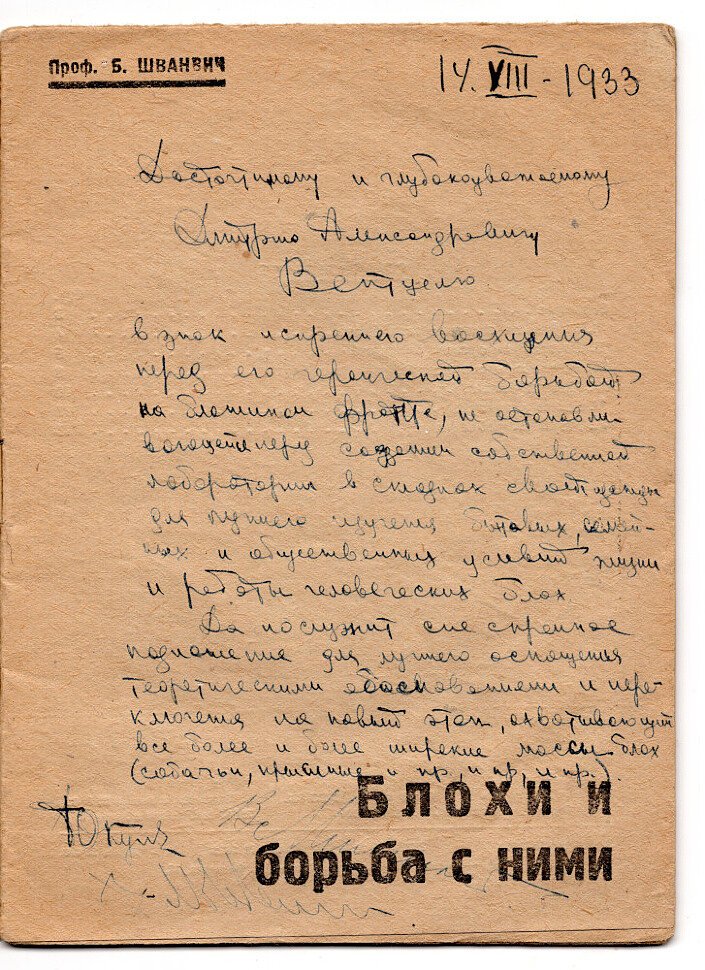 Проф. Б. ШВАНВИЧ
14. VIII - 1933
Досточтимому и глубокоуважаемому
Дмитрию Александровичу
в знак искреннего восхищения
перед его героической борьбой
на блошином фронте, не останавли-
вающейся перед создании собственной
лаборатории в складках своей одежды
для лучшего изучения бытовых, семей-
ных и общественных условий жизни
и работы человеческих блох.
Да послужит сие скромное
подношение для лучшего оснащенья
теоретическими обоснованиями и пере-
ключения на новый этап, охватывающий
все более и более широкие массы блох
(собачьи, крысиные и пр, и пр, и пр.).
Блохи и
борьба с ними